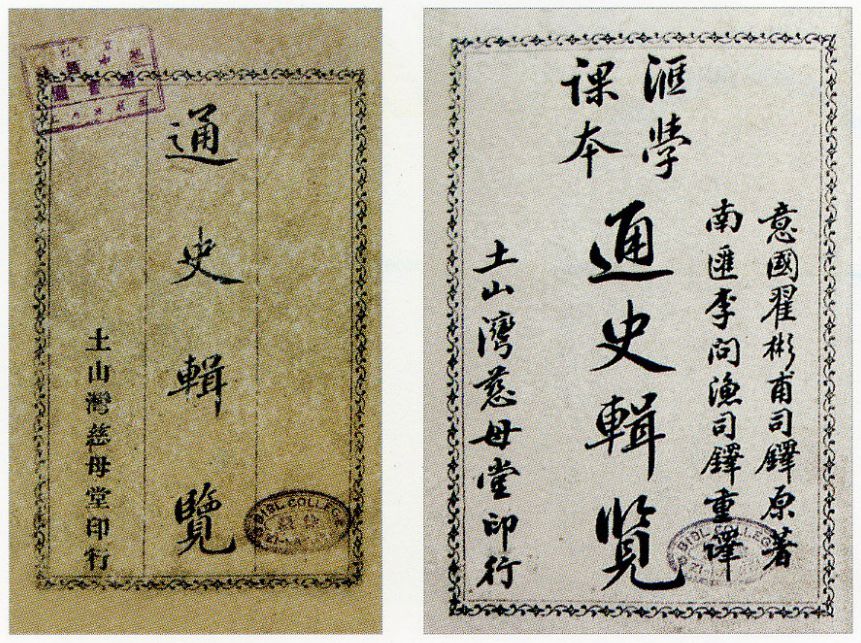 通史輯覽
土山灣慈母堂印行
BIBL COLLEGE
意國翟彬甫司鐸原著
南匯李问漁司鐸重譯
滙學
课本
通史輯览
土山灣慈母堂印行
BIBL COLLEGE